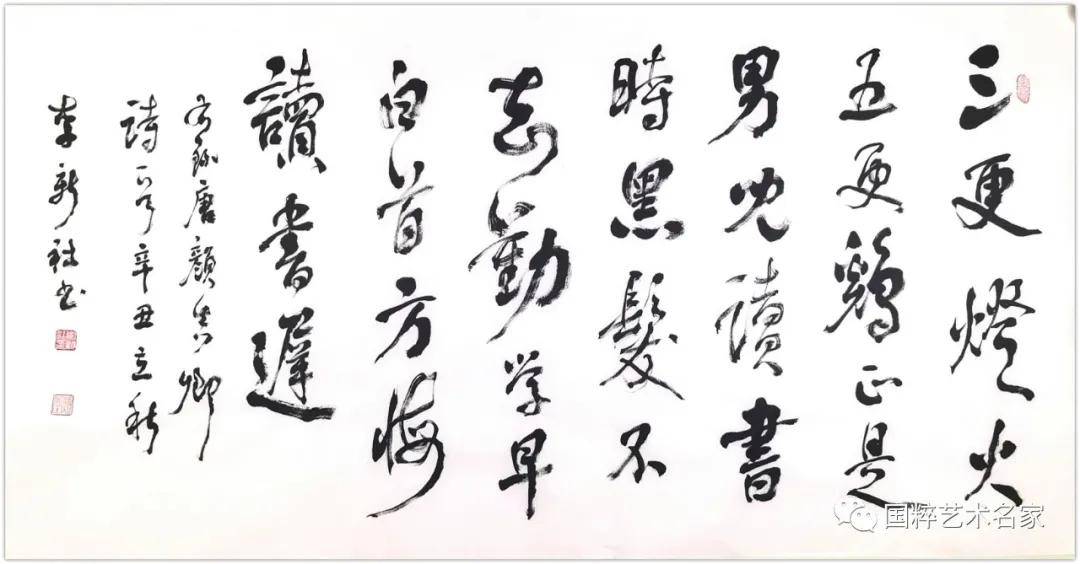 三更燈火
五更鷄正是
男兒讀書
時黑髮不
知勤学早
白首方悔
讀書遲
右錄唐顏真卿
詩一首辛丑立秋
李新书
国粹艺术名家